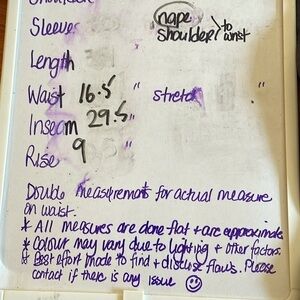 Shoulder
nape
Sleeves
shoulder/ to wrist
Length "
Waist 16.5 " stretch "
Inseam 29.5 "
Rise 9 "
Double measurement for actual measure
on waist.
* All measures are done flat + are approximate
* Colour may vary due to lighting + other factors.
* Best effort made to find + disclose flaws. Please
contact if there is any issue ☺